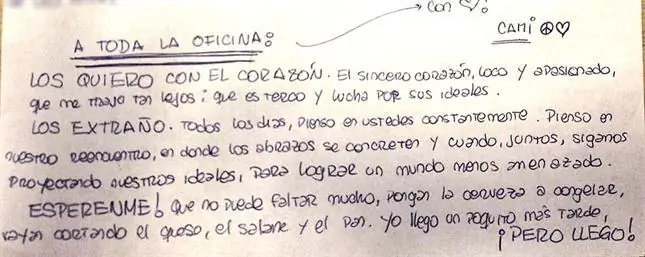 con ♡!
CAMI ☮♡
A TODA LA OFICINA:
LOS QUIERO CON EL CORAZÓN. El sincero corazón, loco y apasionado,
que me trajo tan lejos; que es terco y lucha por sus ideales.
LOS EXTRAÑO. Todos los días, pienso en ustedes constantemente. Pienso en
nuestro reencuentro, en donde los abrazos se concreten y cuando, juntos, sigamos
proyectando nuestros ideales, para lograr un mundo menos amenazado.
ESPERENME! Que no puede faltar mucho, pongan la cerveza a congelar,
vayan cortando el queso, el salame y el pan. Yo llego un poquito más tarde,
¡PERO LLEGO!